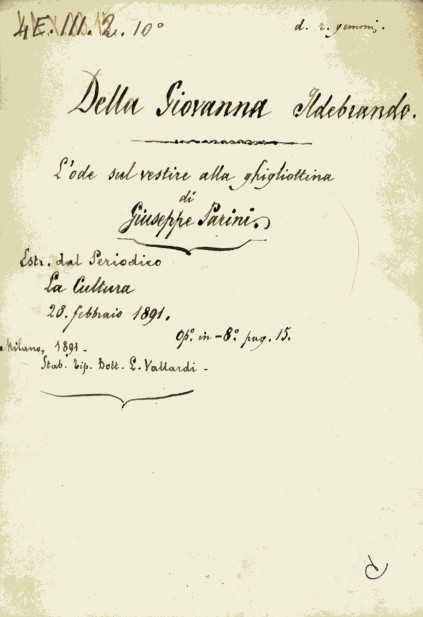 4E. III. 2. 10°
d. r. gemmi.
Della Giovanna Ildebrando.
L'ode sul vestire alla ghigliottina
di
Giuseppe Parini.
Estr. dal Periodico
La Cultura
28. febbraio 1891.
Op.° in-8.° pag. 15.
Milano, 1891-
Stab. Tip. Dott. L. Vallardi-